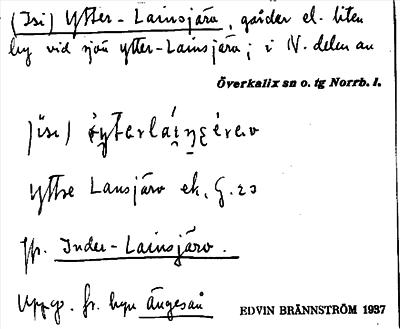 (Isi) Ytter-Lainsjärv, gårdar el. liten
by vid sjön Ytter-Lainsjärv; i N. delen av
Överkalix sn o. tg Norrb. l.
Yttre Lansjärv ek. G.23
Jfr. Inder-Lainsjärv.
Uppg. fr. byn Ängeså
EDVIN BRÄNNSTRÖM 1937